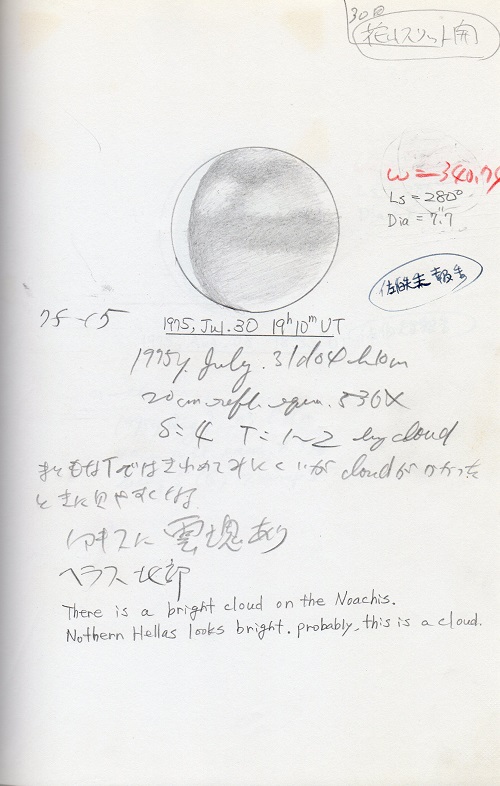 30回
花山スリット開
ω=340.7
Ls = 280°
Dia = 7".7
報告
75-15
1975, Jul. 30 19h10m UT
1975y. July. 31d04h10m
20cm refl. 530X
S: 4 T: 1~2 by cloud
まともなTではきわめてみにくいがcloudがかかった
ときに見やすくなる
ノアキスに雲塊あり
ヘラス北部
There is a bright cloud on the Noachis.
Nothern Hellas looks bright. probably, this is a cloud.